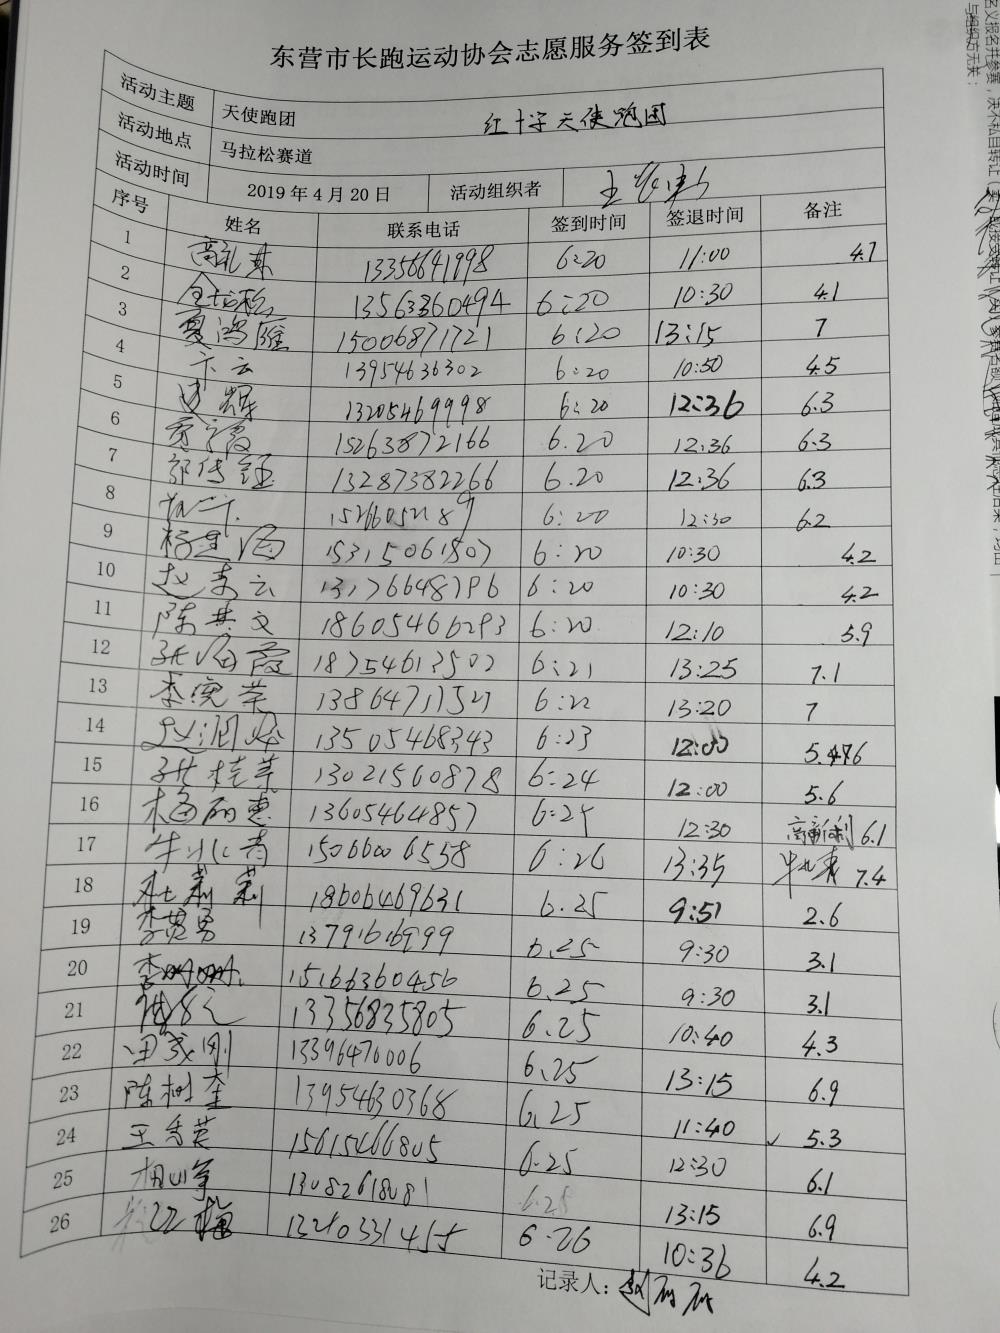 东营市长跑运动协会志愿服务签到表
活动主题 天使跑团 红十字天使跑团
活动地点 马拉松赛道
活动时间 2019年4月20日 活动组织者 王
序号 姓名 联系电话 签到时间 签退时间 备注
1 13356641998 6:20 11:00 4.7
2 13563360494 6:20 10:30 4.1
3 夏鸿雁 15006871721 6:20 13:15 7
4 卞云 13954636302 6:20 10:50 4.5
5 边辉 13205469998 6:20 12:36 6.3
6 15263872166 6.20 12:36 6.3
7 郭传 13287382266 6.20 12:36 6.3
8 15266052189 6:20 12:30 6.2
9 杨建海 15315061507 6:20 10:30 4.2
10 赵素云 13176648796 6:20 10:30 4.2
11 陈其文 18605466293 6:20 12:10 5.9
12 张海霞 18754613502 6:21 13:25 7.1
13 李宪荣 13864711521 6:22 13:20 7
14 赵润 13505468343 6:23 12:00 5.6
15 张桂荣 13021560878 6:24 12:00 5.6
16 梅丽惠 13605464857 6:25 12:30 6.1
17 牛北青 15066006558 6:26 13:35 7.4
18 杜莉莉 18606469631 6.25 9:51 2.6
19 李英勇 13791616999 6.25 9:30 3.1
20 李珊珊 15166360456 6.25 9:30 3.1
21 13356835805 6.25 10:40 4.3
22 田茂刚 13396470006 6.25 13:15 6.9
23 陈树奎 13954630368 6.25 11:40 5.3
24 王秀英 15615466805 6.25 12:30 6.1
25 相山军 13082618081 6.25 13:15 6.9
26 13210331455 6.26 10:36 4.2
记录人：赵丽丽